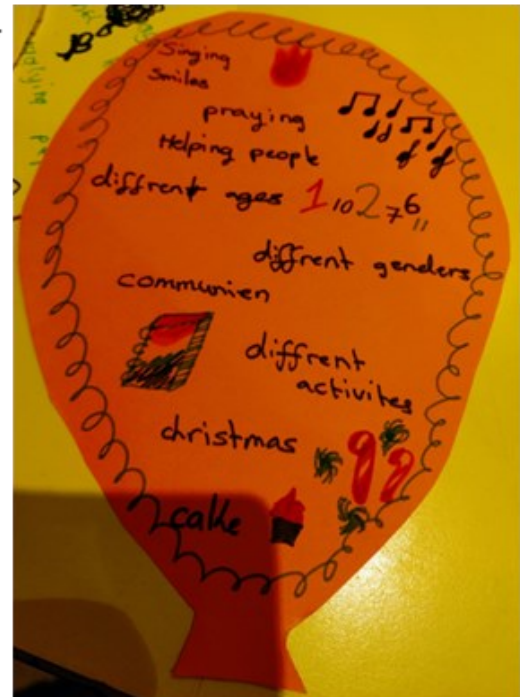 Singing
Smiles
praying
Helping people
diffrent ages 1 10 2 7 6 11
diffrent genders
communien
diffrent
activites
christmas
cake